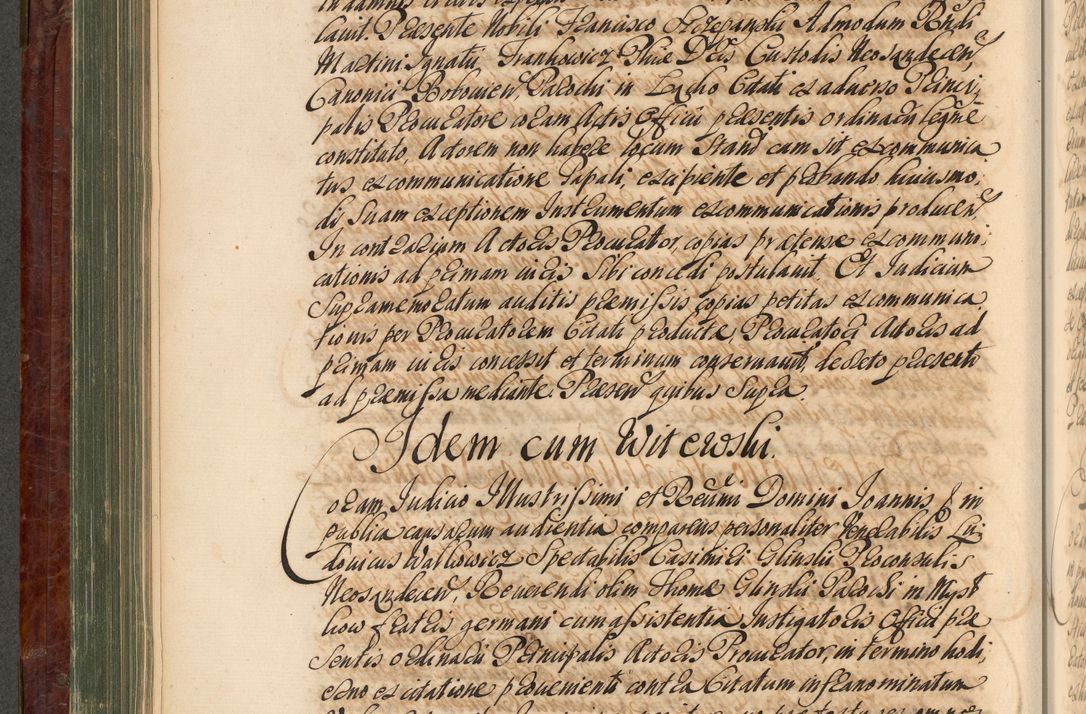 cavit. Presente Nobili Francisco Szczepanski Admodum Rndi
Martini Ignatii Frankowicz Phiæ Dris Custodis Neosandecen
Canonici Bobovien Parochi in Lysko Citati ex adverso Princi,
palis Procuratore coram Actis Officii præsentis ordinarii legme
constituto, Actorem non habere locum Standi cum sit excommunica
tus excommunicatione Papali, excipiente et probando huiusmo,
di Suam exceptionem Instrumentum excommunicationis producen,
In contrarium Actoris Procurator copias prætensæ excommuni,
cationis ad primam iuris Sibi concedi postulavit. Et Iudicium
Supramemoratum auditis præmissis copias petitas excommunica
tionis per Procuratorem Citati productæ, Procuratori Actoris ad
primam iuris concessit et terminum conservavit, decreto præsenti
ad præmissa mediante. Præsen quibus Supra.
Idem cum Witewski.
Coram Iudicio Illustrissimi et Rdmi Domini Ioannis & in
publica causarum audientia comparens personaliter Venerabilis Lu
dovicus Walkowicz Spectabilis Casimiri Glinski Proconsulis
Neosandecen, Reverendi olim Thomæ Glinskii Parochi in Myst
kow fratris germani cum assistentia Instigatoris Officii præ
sentis ordinarii Principalis Actoris Procurator, in termino hodi,
erno ex citatione provenienti contra Citatum infranominatum